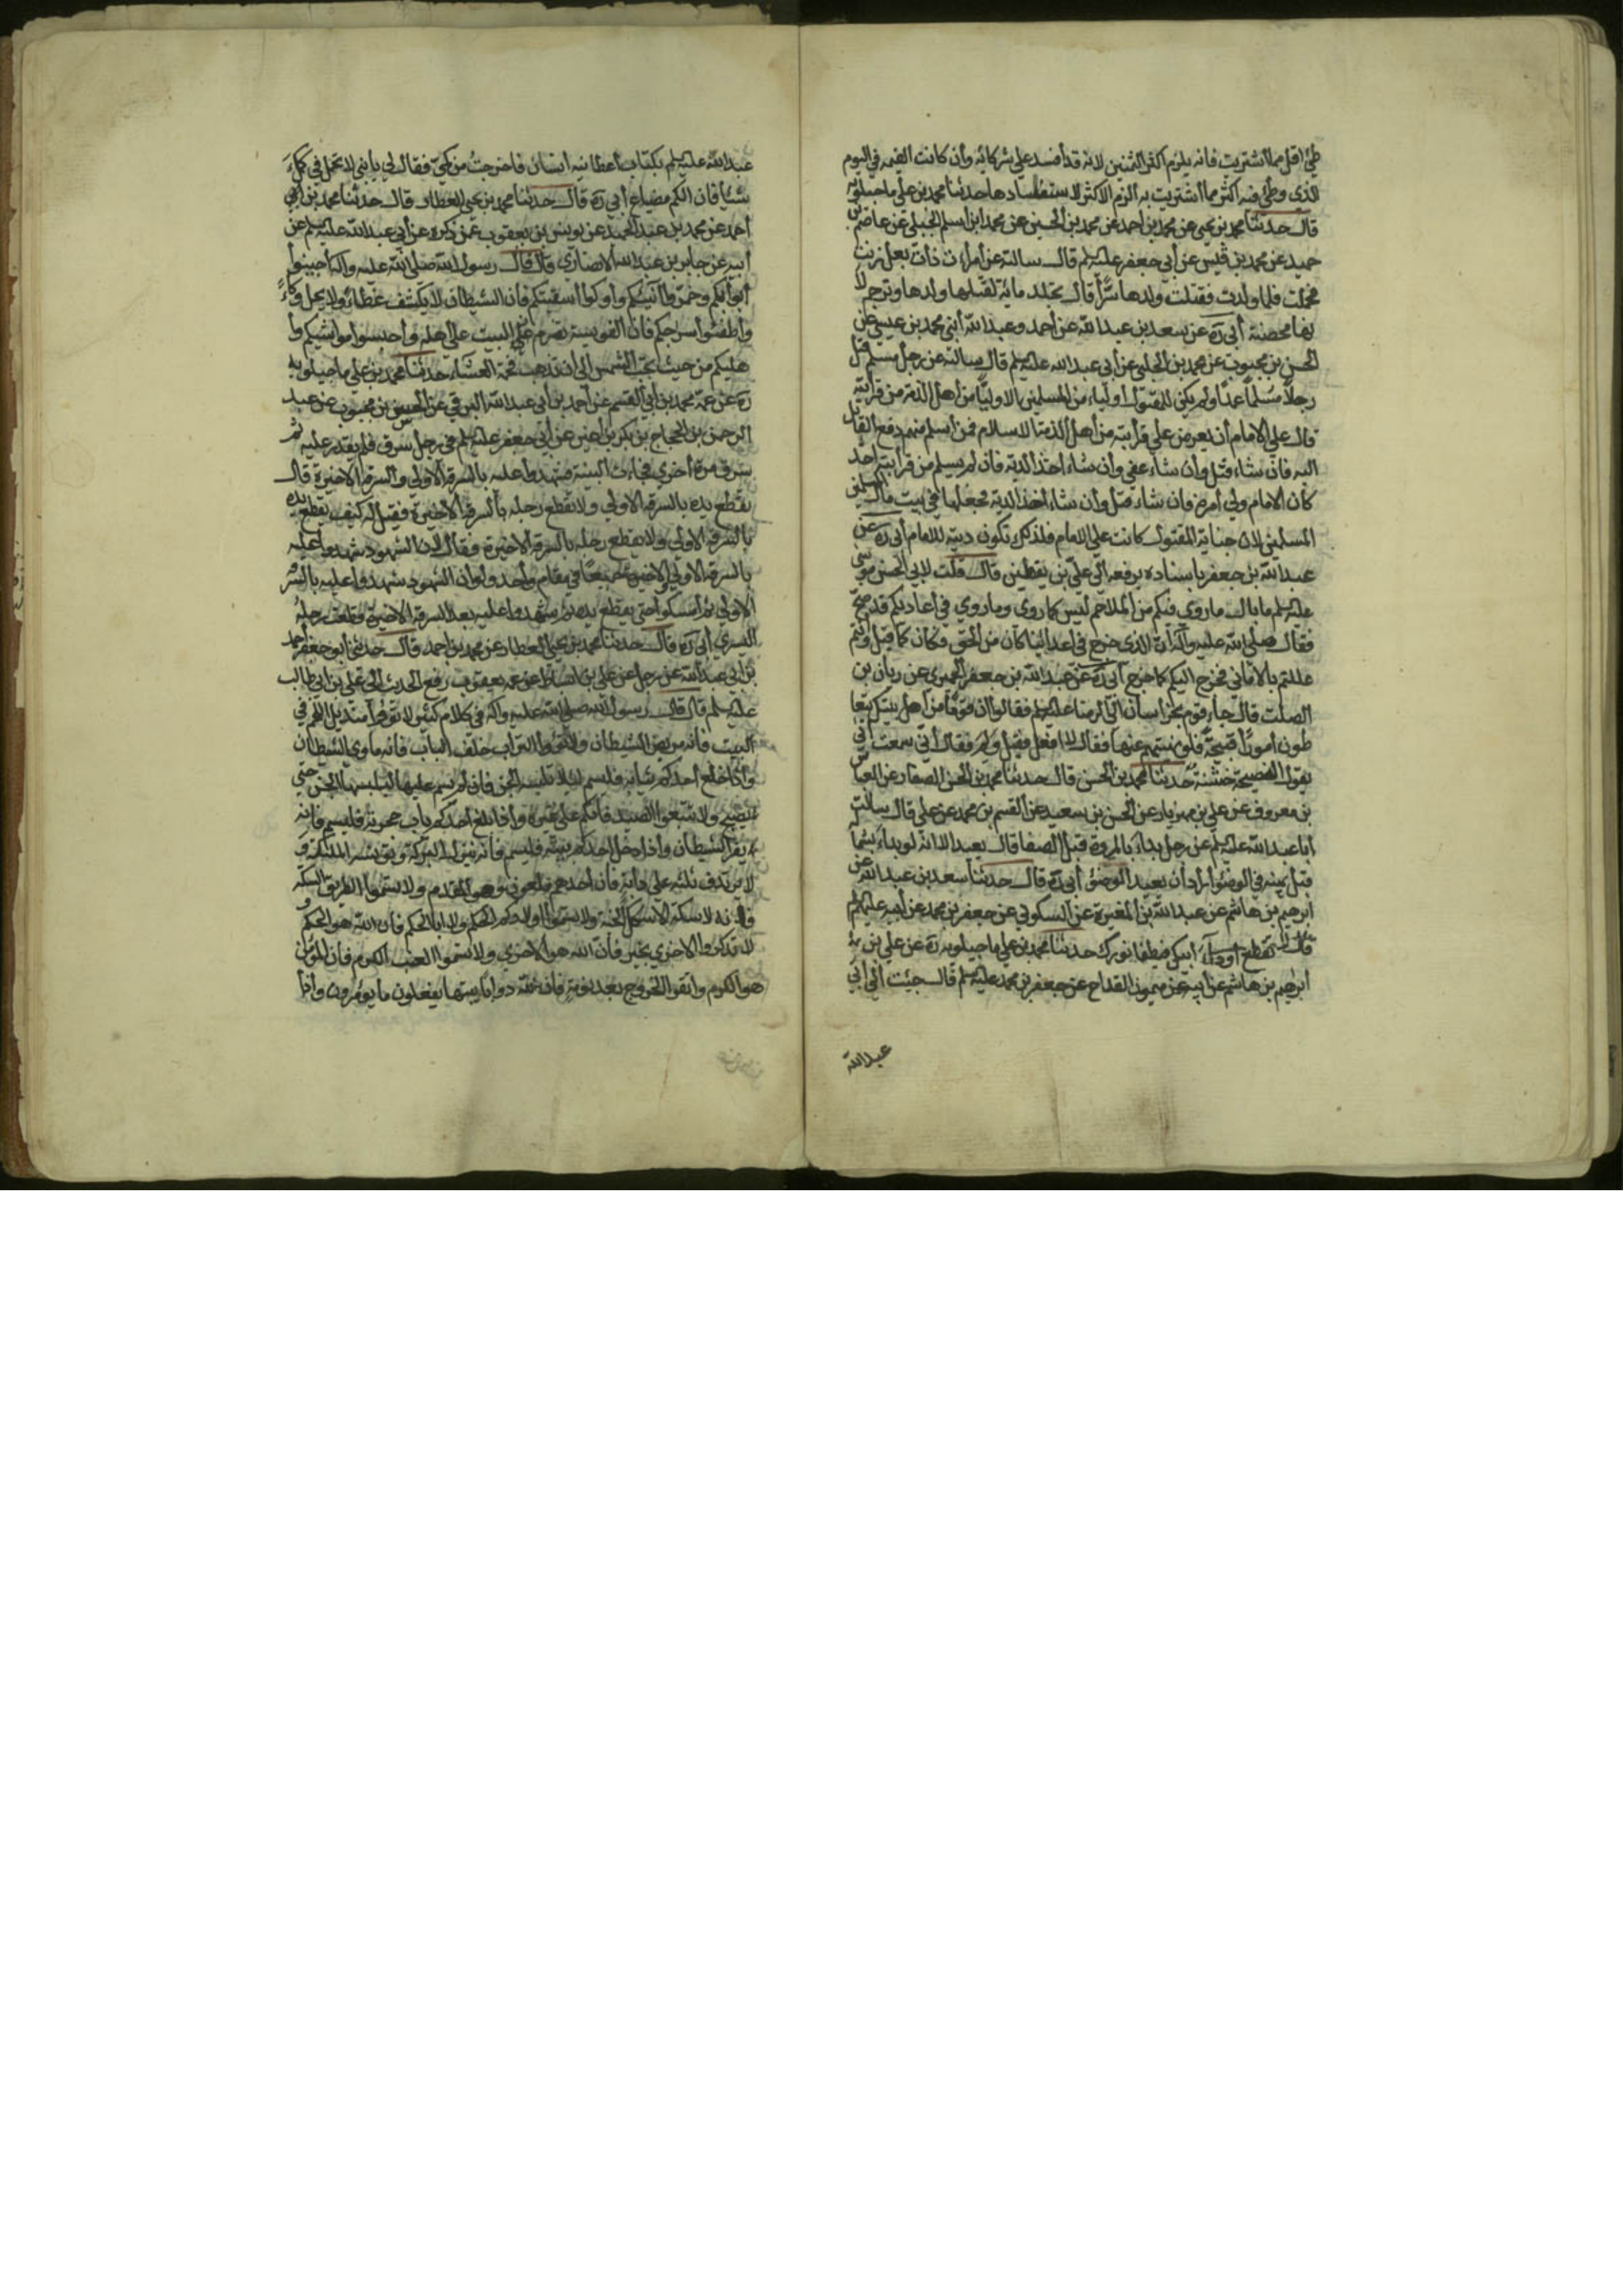 طئ اقل مما اشتريت فانه يلزم اكثر الثمنين لانه قد أفسد علي شركائه وأن كانت القيمه في اليوم
الذى وطئ فيه اكثر مما اشتريت به الزم الاكثر لاستفسادها حدثنا محمد بن علي ماجيلويه
قال حدثنا محمد بن يحيى عن محمد بن احمد عن محمد بن الحسين عن محمد ابن اسلم الجبلي عن عاصم بن
حميد عن محمد بن قيس عن أبي جعفر عليه لم قال سالته عن أمرأت ذات بعل زنت
فحملت فلما ولدت فقتلت ولدها سرا قال تجلد مائة لقتلها ولدها وترجم لا
نها محصنة أبي ره عن سعد بن عبد الله عن أحمد وعبد الله أبني محمد بن عيسي عن
الحسن بن محبوب عن محمد بن الحلبي عن أبي عبد الله عليه لم قال سالته عن رجل مسلم قتل
رجلا مسلما عمدا ولم يكن للمقتول أولياء من المسلمين الا وليا من أهل الذمة من قرأبته
قال علي الامام أن يعرض علي قرأبته من أهل الذمة الاسلام فمن أسلم منهم دفع القاتل
اليه فان شاء قتل وان شاء عفي وأن شاء اخذ الدية فان لم يسلم من قرابته احد
كان الامام ولي أمره فان شاء قتل وأن شاء أخذ الدية فجعلها في بيت مال
المسلمين لان جناية المقتول كانت علي الامام فلذلك تكون ديته للامام أبي ره عن
عبد الله بن جعفر باسناده يرفعه الي علي بن يقطين قال قلت لابي الحسن موسي
عليه لم ما بال ما روى فيكم من الملاحم ليس كما روى وما روى في أعاديكم قد صح
فقال صلي الله عليه وآله ان الذى خرج في اعدائنا كان من الحق فكان كما قيل وأنتم
عللتم بالاماني فخرج اليكم كما خرج أبي ره عن عبد الله بن جعفر الحميرى عن ريان بن
الصلت قال جاء قوم بخراسان الي الرضا عليه لم فقالوا ان قوما من أهل بيتك يتعا
طون أمورا قبيحة فلو نهيتهم عنها فقال لا افعل فقيل ولم فقال أني سمعت أبي
يقول النصيحة خشنة حدثنا محمد بن الحسن قال حدثنا محمد بن الحسن الصفار عن العباس
بن معروف عن علي بن مهزيار عن الحسن بن سعيد عن القسم بن محمد عن علي قال سالت
أبا عبد الله عليه لم عن رجل بداء بالمروة قبل الصفا قال يعيد الا انه لو بداء بشماله
قبل يمينه في الوضؤ أراد أن يعيد الوضئ أبي ره قال حدثنا سعد بن عبد الله عن
ابرهيم بن هاشم عن عبد الله بن المغيرة عن السكوني عن جعفر بن محمد عن أبيه عليهم لم
قال لا تقطع أوداء أبيك فيطفا نورك حدثنا محمد بن علي ماجيلويه ره عن علي بن
أبرهيم بن هاشم عن أبيه عن ميمون القداح عن جعفر بن محمد عليه لم قال جيئت الي أبي
عبد الله
عبد الله عليه لم بكتاب أعطانيه أنسان فاخرجت من كمي فقال لي يا بني لا تحمل في كمك
شئيا فان الكم مضياع أبي ره قال حدثنا محمد بن يحيي العطار قال حدثنا محمد بن
أحمد عن محمد بن عبد الحميد عن يونس بن يعقوب عمن ذكره عن أبي عبد الله عليه لم عن
أبيه عن جابر بن عبد الله الانصاري قال قال رسول الله صلي الله عليه وآله أجيفوا
أبوأبكم وخمروا آنيتكم وأوكوا أسقيتكم فان الشيطان لا يكشف غطاء ولا يحل وكاء
وأطفئوا سرجكم فان الفويسقة تضرم البيت علي أهله وأحبسوا مواشيكم وأ
هليكم من حيث تجب الشمس الي أن تذهب فحمة العشاء حدثنا محمد بن علي ماجيلويه
ره عن عمه محمد بن أبي القسم عن أحمد بن أبي عبد الله البرقي عن الحسن بن محبوب عن عبد
الرحمن بن الحجاج بن بكير بن أعين عن أبي جعفر عليه لم في رجل سرق فلم يقدر عليه ثم
سرق مرة أخرى فجاءت البينة فشهدوا عليه بالسرقه الاولي والسرقه الاخيرة قال
تقطع يده بالسرقه الاولي ولا تقطع رجله بالسرقه الاخيرة فقيل له كيف تقطع يده
بالسرقه الاولي ولا تقطع رجله بالسرقه الاخيرة فقال لان الشهود شهدوا عليه
بالسرقه الاولي والاخيرة جميعا في مقام وأحد ولو ان الشهود شهدوا عليه بالسرقه
الاولي ثم أمسكوا حتي يقطع يده ثم شهدوا عليه بعد السرقه الاخيرة قطعت رجله
اليسري أبي ره قال حدثنا محمد بن يحيي العطار عن محمد بن احمد قال حدثني أبو جعفر أحمد
بن أبي عبد الله عن رجل عن علي بن أسباط عن عمه يعقوب رفع الحديث الي علي بن أبي طالب
عليه لم قال قال رسول الله صلي الله عليه وآله في كلام كثير لا تؤوا منديل اللحم في
البيت فانه مربض الشيطان ولا تؤوا التراب خلف الباب فانه ماوى الشيطان
وأذا خلع أحدكم ثيابه فليسم لئلا تلبسه الجن فانه لم يسم عليها لبسها الجن حتي
يصبح ولا تتبعوا الصيد فانكم علي غرة وأذا بلغ أحدكم باب حجرته فليسم فانه
يفر الشيطان وأذا دخل أحدكم بيته فليسم فانه ينزل البركة وتونسه الملئكة و
لا يرتدف ثلثة علي دابة فان أحدهم ملعون وهو المقدم ولا تسموا الطريق السكة
فانه لا سكة الا سكك الجنة ولا تسموا اولادكم الحكم ولا ابا الحكم فان الله هو الحكم
لا تذكروا الاخرى الا بخير فان الله هو الاخرى ولا تسموا العنب الكرم فان المؤمن
هو الكرم واتقوا الخروج بعد نومة فان لله دوابا يبثها يفعلون ما يؤمرون وأذا